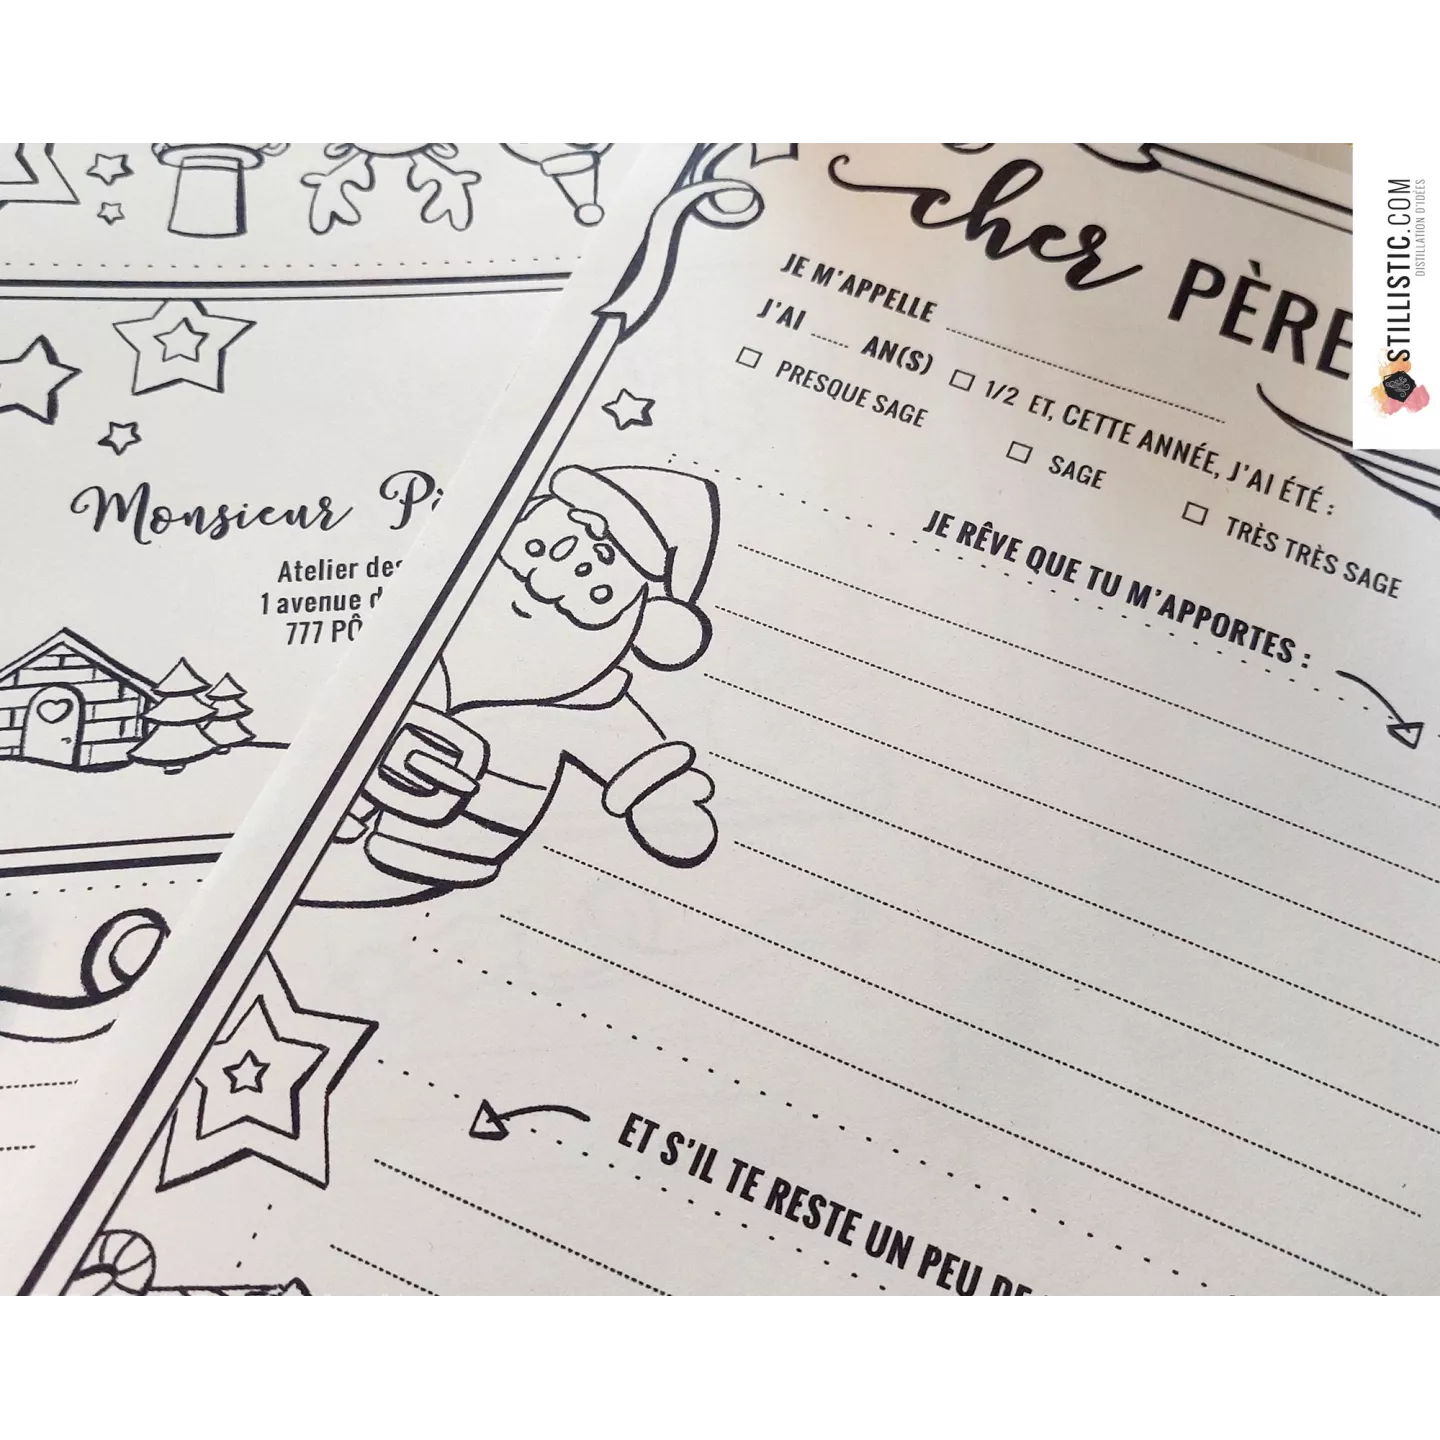 cher PÈRE
JE M'APPELLE
J'AI ...... AN(S) ☐ 1/2 ET, CETTE ANNÉE, J'AI ÉTÉ :
☐ PRESQUE SAGE ☐ SAGE ☐ TRÈS TRÈS SAGE
JE RÊVE QUE TU M'APPORTES :
ET S'IL TE RESTE UN PEU DE
Monsieur
Atelier des
1 avenue
777
STILLISTIC.COM
DISTILLATION D'IDÉES